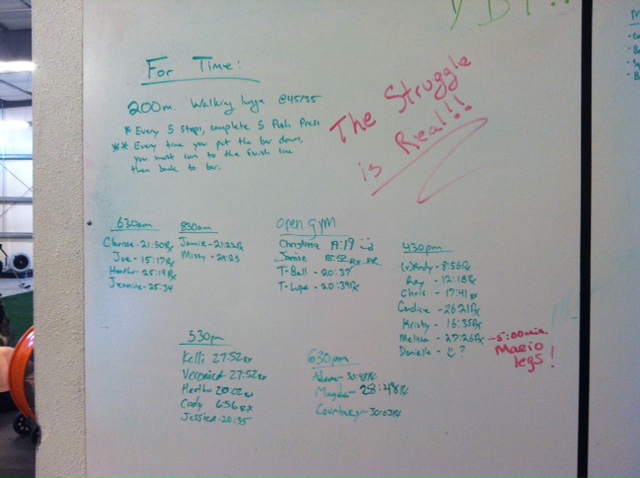 For Time:
200m. Walking lunge @45/35
* Every 5 Steps, complete 5 Push Press
** Every time you put the bar down,
you must run to the finish line
then back to bar.
The Struggle
is Real!!!
630am
Clarisse - 21:50Rx
Joe - 15:17Rx
Heather - 25:19Rx
Jeanine - 25:34
830am
Jamie - 21:22Rx
Missy - 21:25
open gym
Christina 19:19
Jamie 18:52 Rx
T-Ball - 20:37
T-Lupe - 20:39Rx
430pm
Andy - 8:56Rx
Ray - 12:16Rx
Chris - 17:41Rx
Candice - 26:21Rx
Kristy - 16:35Rx
Melissa - 27:26Rx
Danielle - ?
-5:00min.
Mario
legs!
530pm
Kelli 27:52Rx
Veronica 27:52Rx
Heather 20:02Rx
Cody 6:56Rx
Jessica - 20:35
630pm
Magda - 28:48Rx
Courtney - 30:03Rx